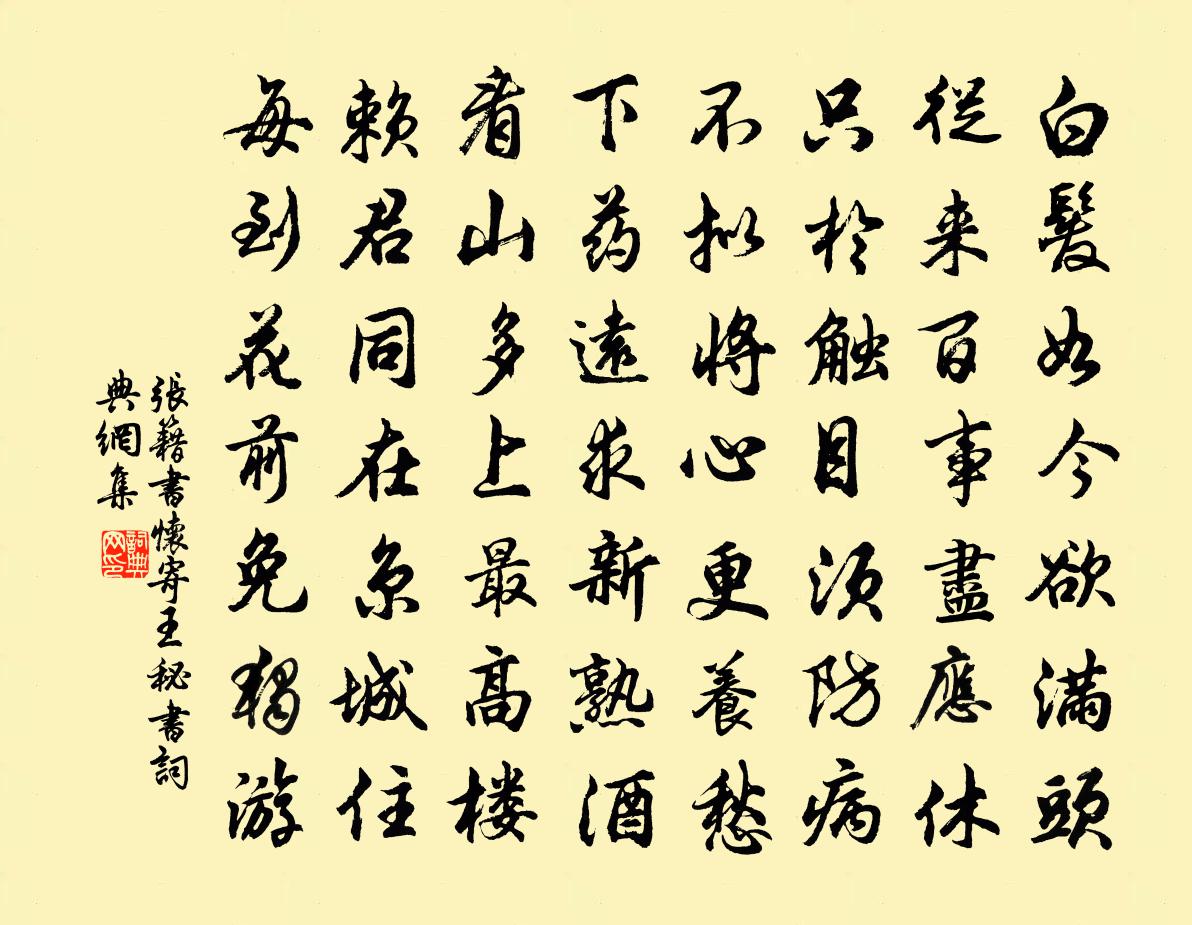 白髮如今欲滿頭
從来百事盡應休
只於触目須防病
不拟將心更養愁
下药遠求新熟酒
看山多上最高楼
赖君同在京城住
每到花前免獨游
張籍書懷寄王秘書詞
典網集
詞典网印